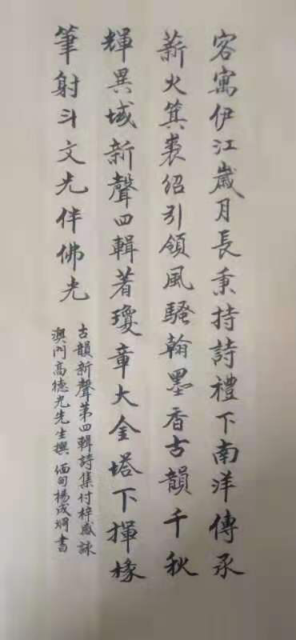 客寓伊江歲月長秉持詩禮下南洋傳承
薪火箕裘紹引領風騷翰墨香古韻千秋
輝異域新聲四輯著瓊章大金塔下揮椽
筆射斗文光伴佛光
古韻新聲第四輯詩集付梓感詠
澳門高德光先生撰 緬甸楊成綱書